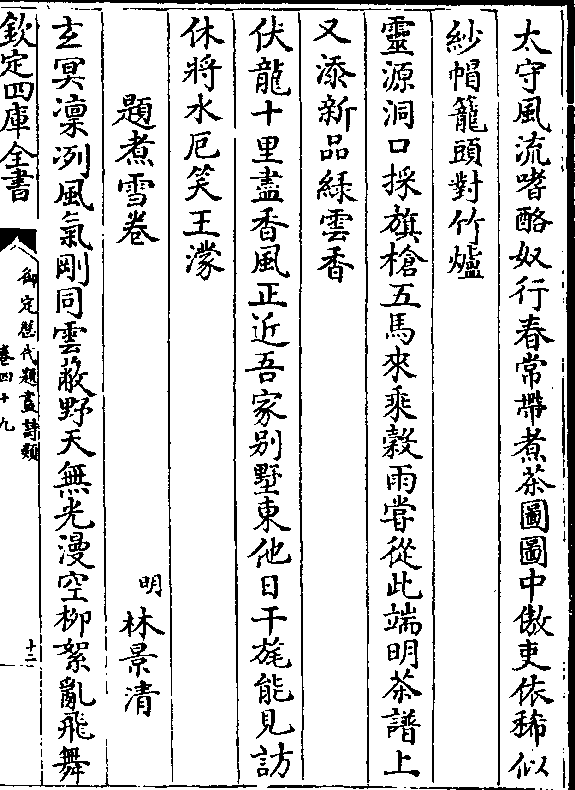 太守風流嗜酪奴行春常帶煮茶圖圖中傲吏依稀似
紗帽籠頭對竹爐
靈源洞口採旗槍五馬來乘穀雨嘗從此端明茶譜上
又添新品綠雲香
伏龍十里盡香風正近吾家别墅東他日干旄能見訪
休將水厄笑王濛
題煮雪卷
明 林景清
玄冥凜冽風氣剛同雲蔽野天無光漫空柳絮亂飛舞
欽定四庫全書
御定歷代題畫詩類
卷四十九
十二